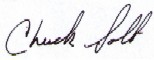 Chuck Solt